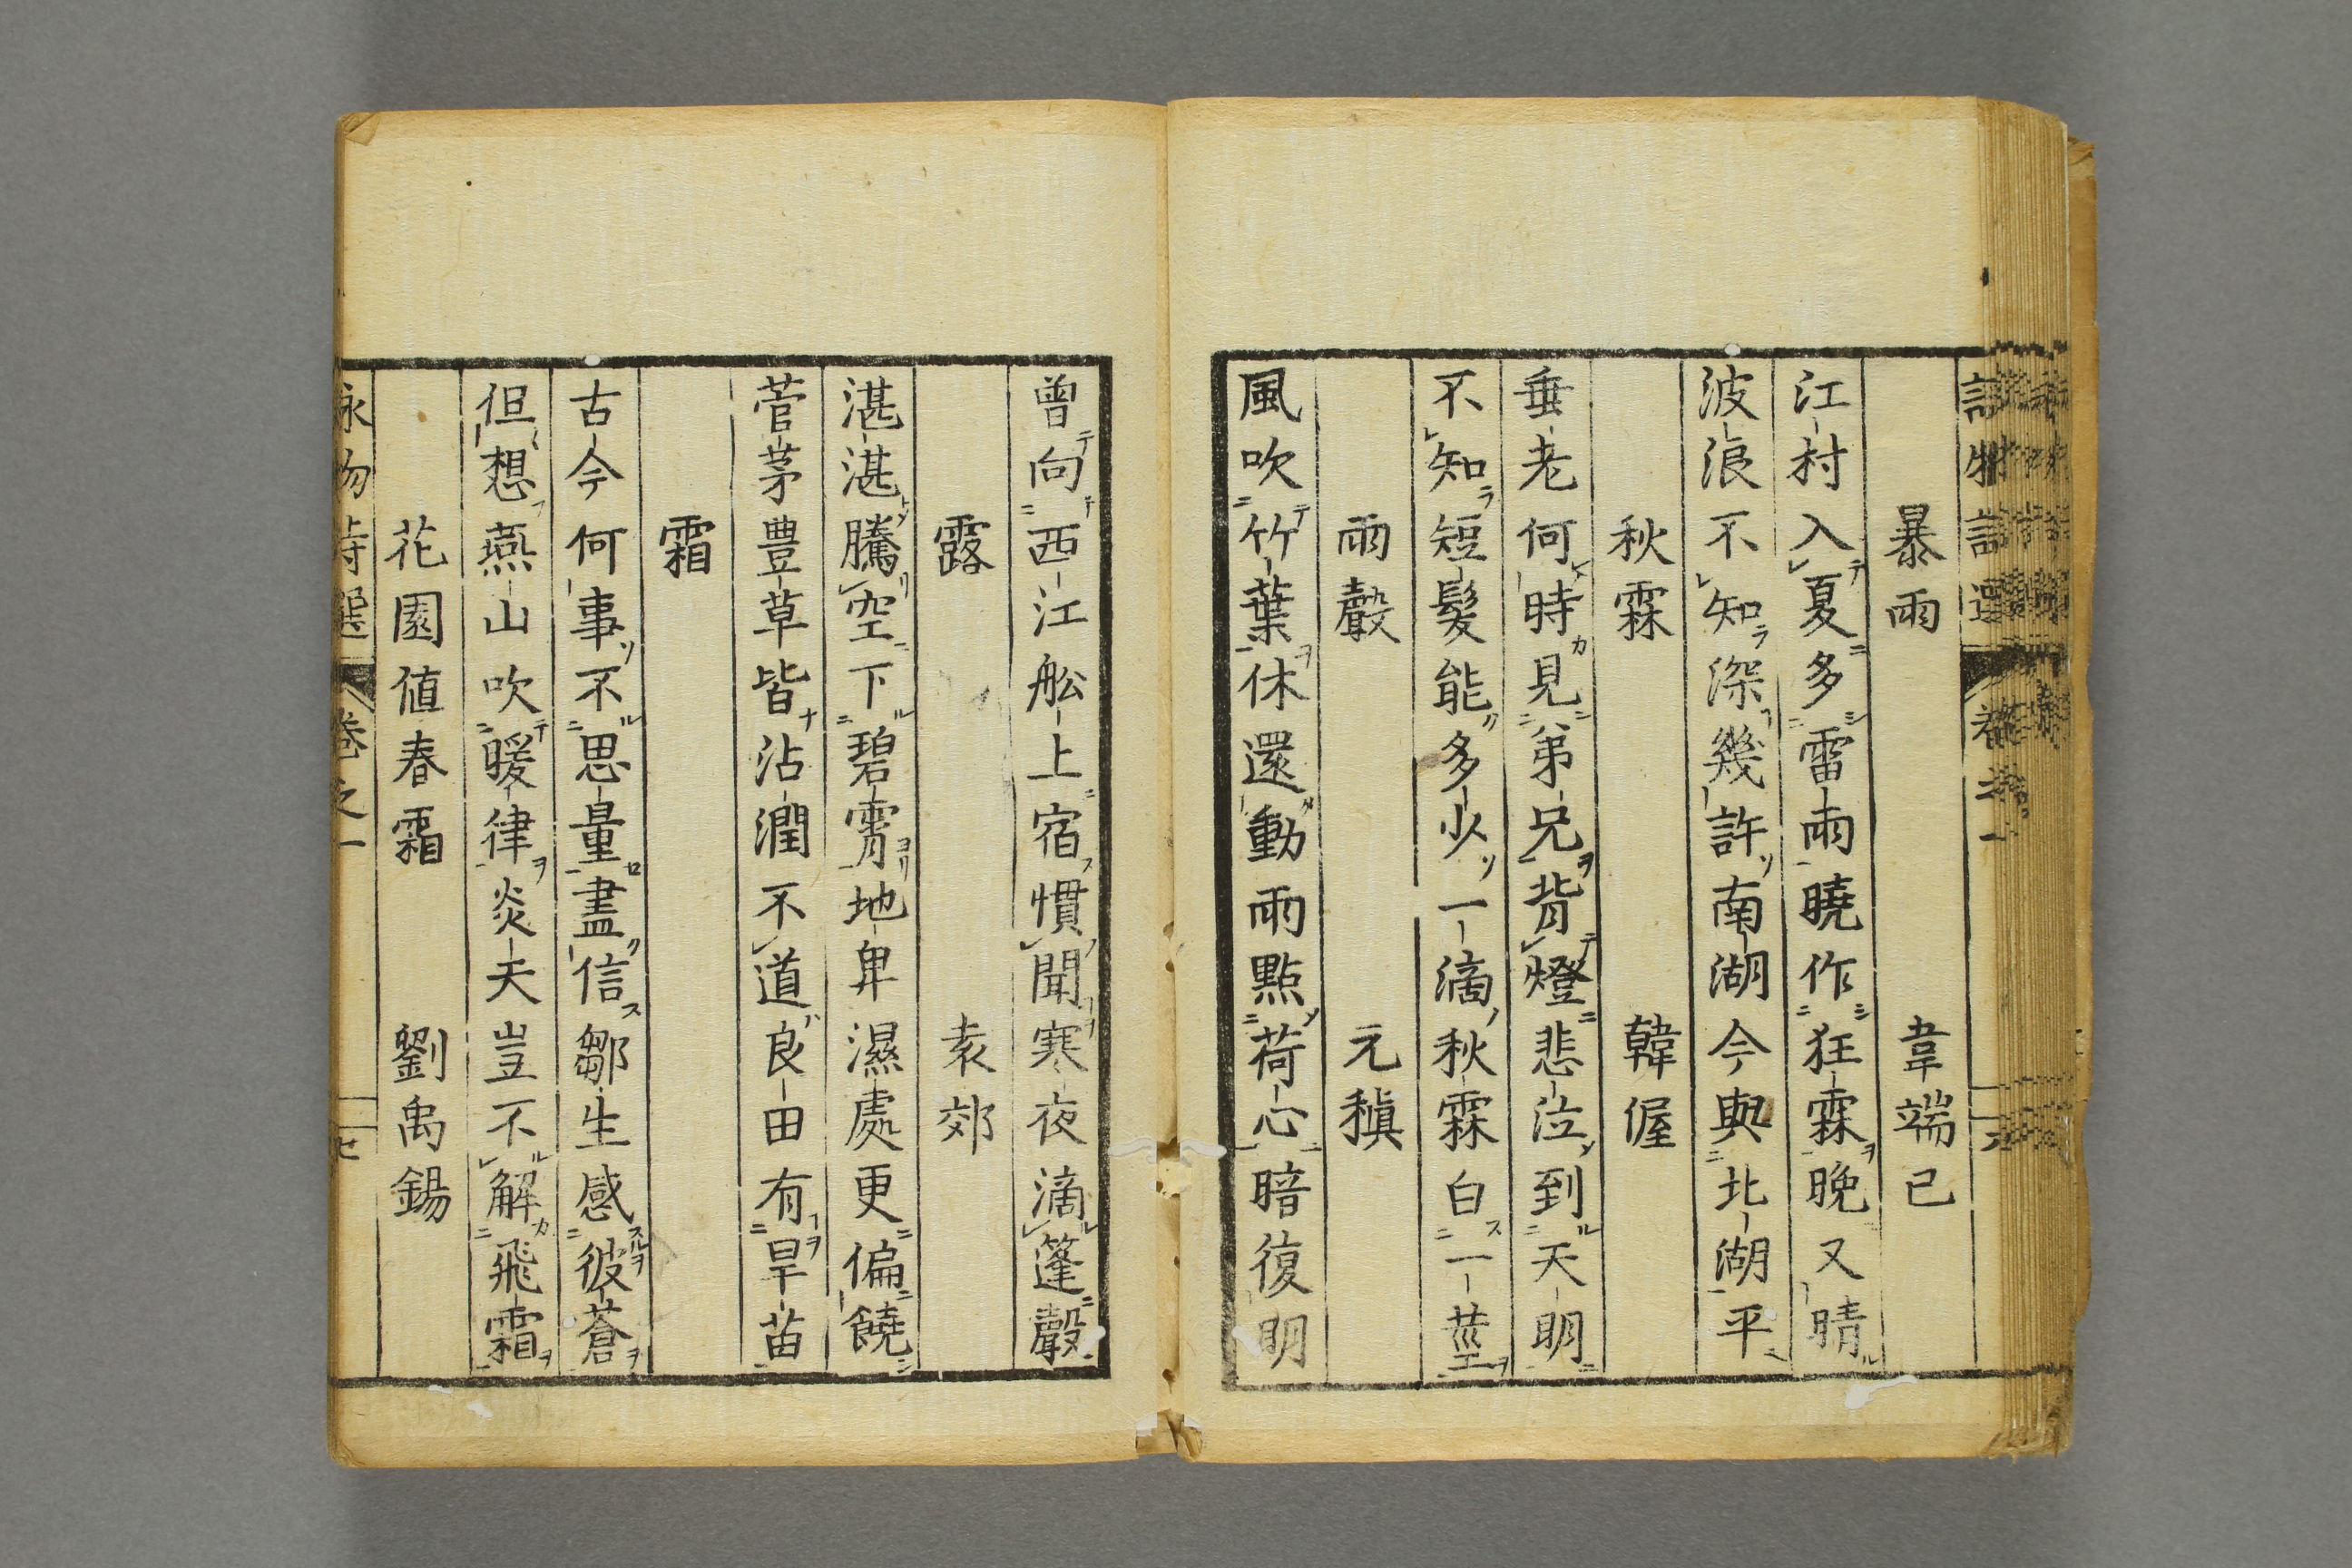 暴雨　韋端已
江村入夏多雷雨曉作狂霖晚又晴
波浪不知深幾許南湖今與北湖平
秋霖　韓偓
垂老何時見弟兄背燈悲泣到天明
不知短髮能多少一滴秋霖白一莖
雨聲　元稹
風吹竹葉休還動雨點荷心暗復明
曾向西江舩上宿慣聞寒夜滴篷聲
露　袁郊
湛湛騰空下碧霄地卑濕處更偏饒
菅茅豊草皆沾潤不道良田有旱苗
霜
古今何事不思量盡信鄒生感彼蒼
但想燕山吹暖律炎天豈不解飛霜
花園值春霜　劉禹錫
詠物詩選　卷之一　七